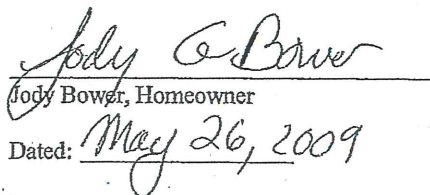 Jody G Bower
Jody Bower, Homeowner
Dated: May 26, 2009